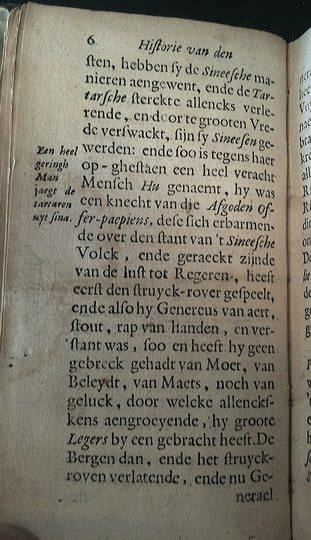 6 Historie van den
sten, hebben sy de Sineesche ma-
nieren aengewent, ende de Tar-
tarsche sterckte allencks verle-
rende, endoor te grooten Vre-
de verswackt, sijn sy Sineesen ge-
werden: ende soo is tegens haer
op-ghestaen een heel veracht
Mensch Hu genaemt, hy was
een knecht van die Afgoden of-
fer-paepiens, dese sich erbarmen.
de over den stant van't Sineesche
Volck, ende geraeckt zijnde
van de lust tot Regeren, heeft
eerst den struyck-rover gespeelt,
ende also hy Genereus van aert,
stout, rap van handen, en ver-
stant was, soo en heeft hy geen
gebreck gehadt van Moet, van
Beleydt, van Maets, noch van
geluck, door welcke allenckf-
kens aengroeyende, hy groote
Legers by een gebracht heeft. De
Bergen dan, ende het struyck-
roven verlatende, ende nu Ge-
nerael
Een heel
geringh
Man
jaegt de
tartaren
uyt sina.